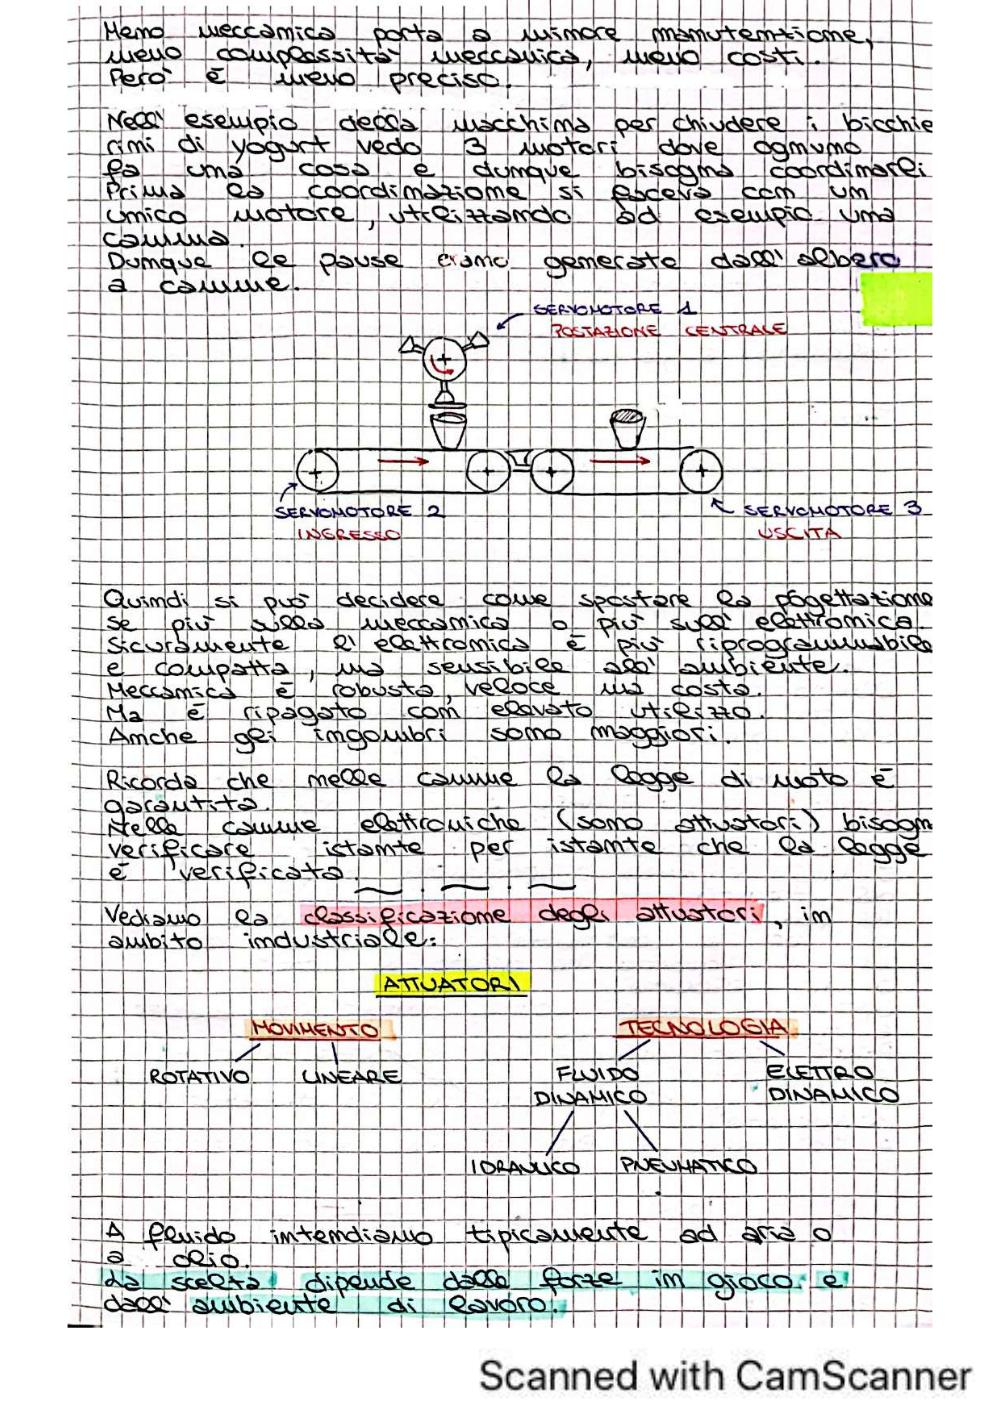 Meno meccanica porta a minore manutentione,
meno complessità meccanica, meno costi.
Però è meno preciso.
Nell' esempio della macchina per chiudere i bicchie
rini di yogurt vedo 3 motori dove ognuno
fa una cosa e dunque bisogna coordinarli
Prima la coordinazione si faceva con un
unico motore, utilizzando ad esempio una
camma.
Dunque le pause erano generate dall' albero
a camme.
SERVOMOTORE 1
POSTAZIONE CENTRALE
SERVOMOTORE 2
INGRESSO
SERVOMOTORE 3
USCITA
Quindi si può decidere come spostare la pogettazione
se più sulla meccanica o più sull' elettronica.
Sicuramente l' elettronica è più riprogrammabile
e compatta, ma sensibile all' ambiente.
Meccanica è robusta, veloce ma costa.
Ma è ripagato con elevato utilizzo.
Anche gli ingombri sono maggiori.
Ricorda che nelle camme la legge di moto è
garantita.
Nelle camme elettroniche (sono attuatori) bisogn
verificare istante per istante che la legge
è verificata.
Vediamo la classificazione degli attuatori, in
ambito industriale:
ATTUATORI
MOVIMENTO TECNOLOGIA
ROTATIVO LINEARE FLUIDO ELETTRO
DINAMICO DINAMICO
IDRAULICO PNEUMATICO
A fluido intendiamo tipicamente ad aria o
a olio.
La scelta dipende dalle forze in gioco e
dall' ambiente di lavoro.
Scanned with CamScanner